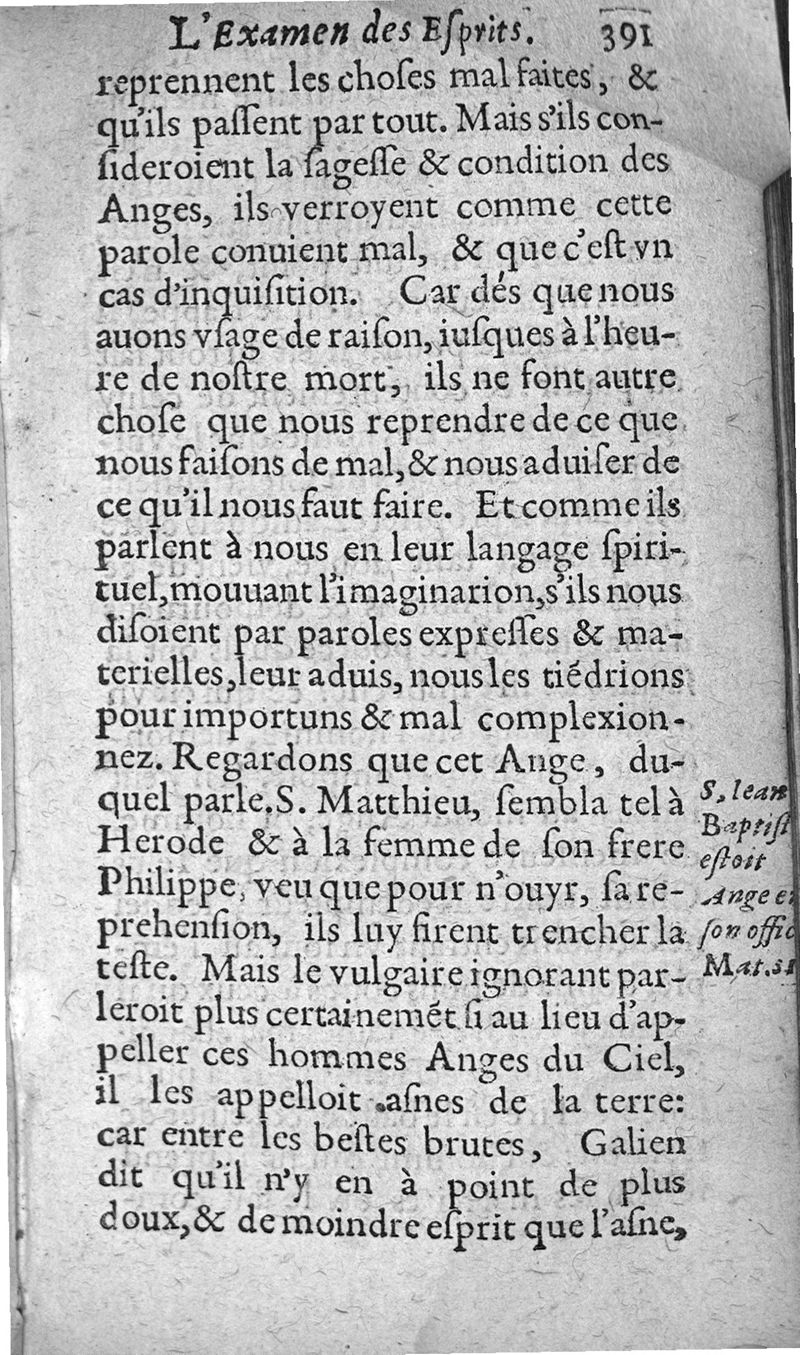 L'Examen des Eſprits. 391
reprennent les choſes mal faites, &
qu'ils paſſent par tout. Mais s'ils con-
ſideroient la ſageſſe & condition des
Anges, ils verroyent comme cette
parole conuient mal, & que c'eſt vn
cas d'inquiſition. Car dés que nous
auons vſage de raiſon, iuſques à l'heu-
re de noſtre mort, ils ne font autre
choſe que nous reprendre de ce que
nous faiſons de mal, & nous aduiſer de
ce qu'il nous faut faire. Et comme ils
parlent à nous en leur langage ſpiri-
tuel, mouuant l'imaginarion, s'ils nous
diſoient par paroles expreſſes & ma-
terielles, leur aduis, nous les tiédrions
pour importuns & mal complexion-
nez. Regardons que cet Ange, du-
quel parle. S. Matthieu, ſembla tel à
Herode & à la femme de ſon frere
Philippe, veu que pour n'ouyr, ſa re-
prehenſion, ils luy firent trencher la
teſte. Mais le vulgaire ignorant par-
leroit plus certainemét ſi au lieu d'ap-
peller ces hommes Anges du Ciel,
il les appelloit aſnes de la terre:
car entre les beſtes brutes, Galien
dit qu'il n'y en à point de plus
doux, & de moindre eſprit que l'aſne,
S. Iean
Baptiſt
eſtoit
Ange e
ſon offic
Mat.